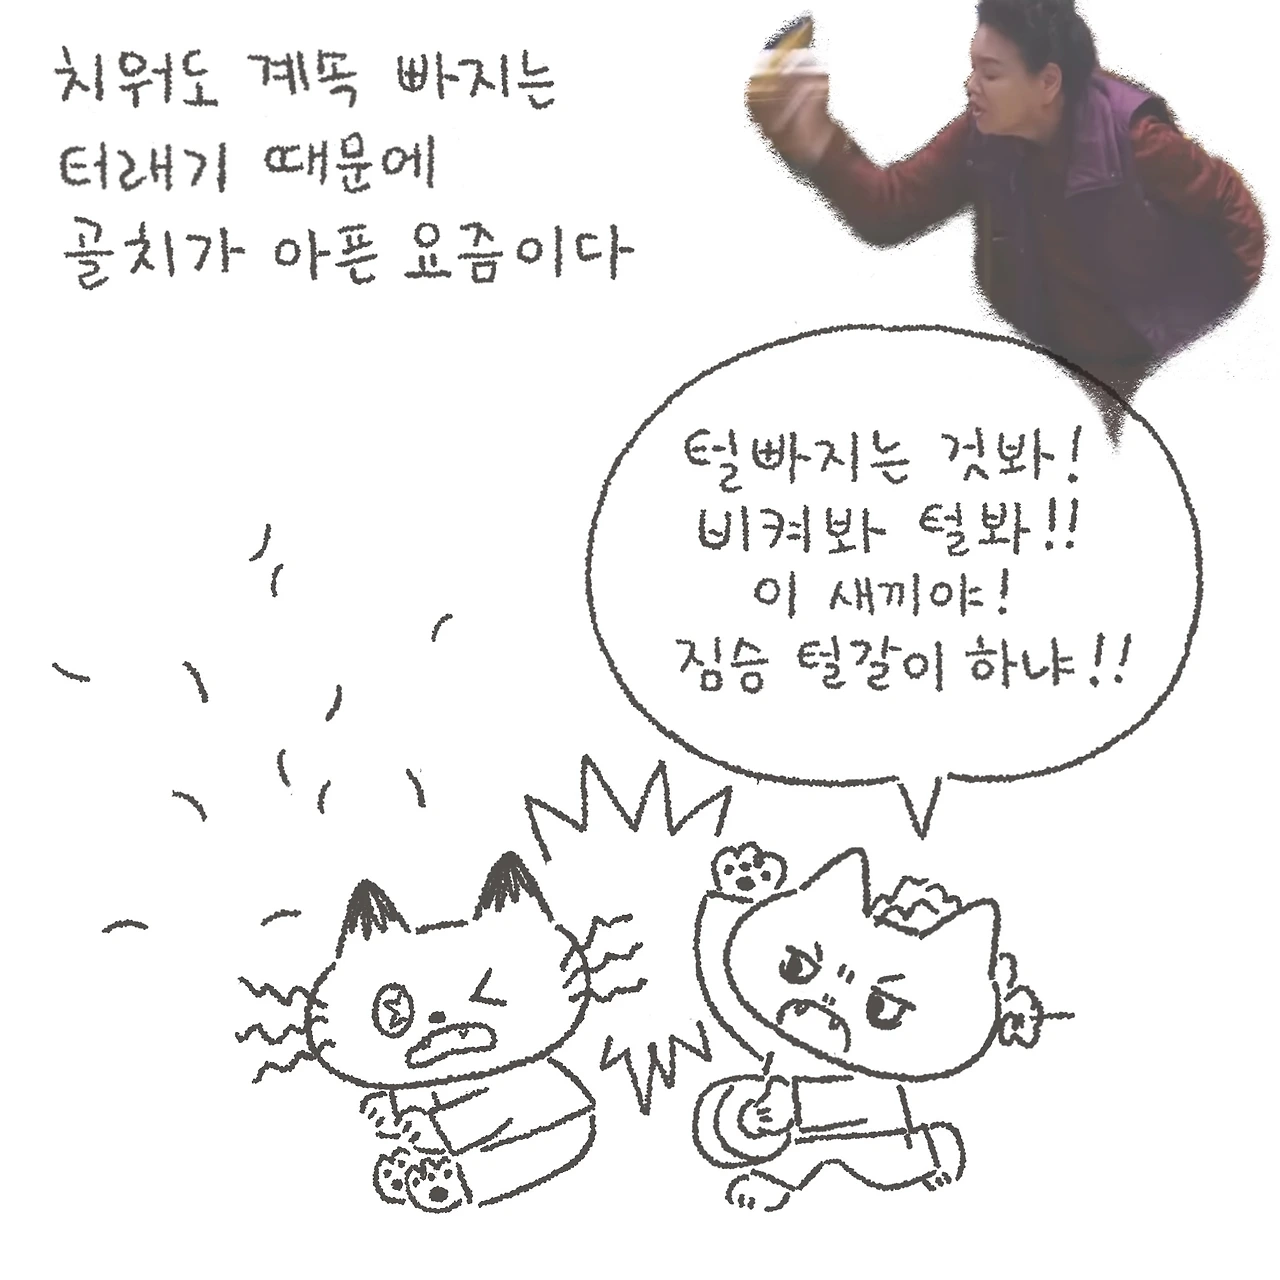 치워도 계속 빠지는
터래기 때문에
골치가 아픈 요즘이다
털빠지는 것봐!
비켜봐 털봐!!
이 새끼야!
짐승 털갈이 하냐!!